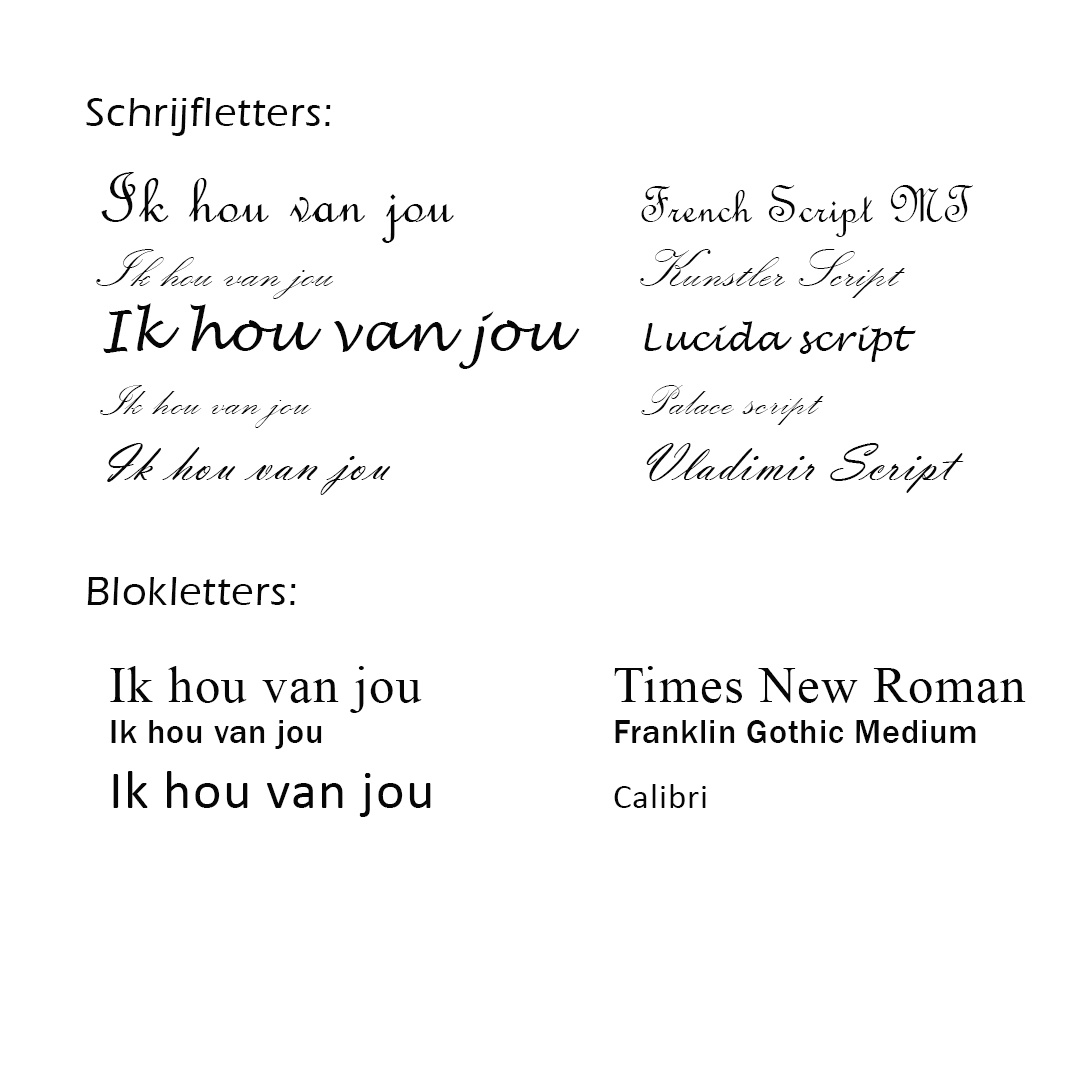 Schrijfletters:
Ik hou van jou French Script MT
Ik hou van jou Kunstler Script
Ik hou van jou Lucida script
Ik hou van jou Palace script
Ik hou van jou Vladimir Script
Blokletters:
Ik hou van jou Times New Roman
Ik hou van jou Franklin Gothic Medium
Ik hou van jou Calibri